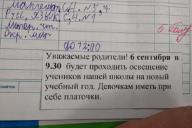 Математ. ч.
Окр. мир
до 12:00
Уважаемые родители! 6 сентября в
9.30 будет проходить освещение
учеников нашей школы на новый
учебный год. Девочкам иметь при
себе платочки.